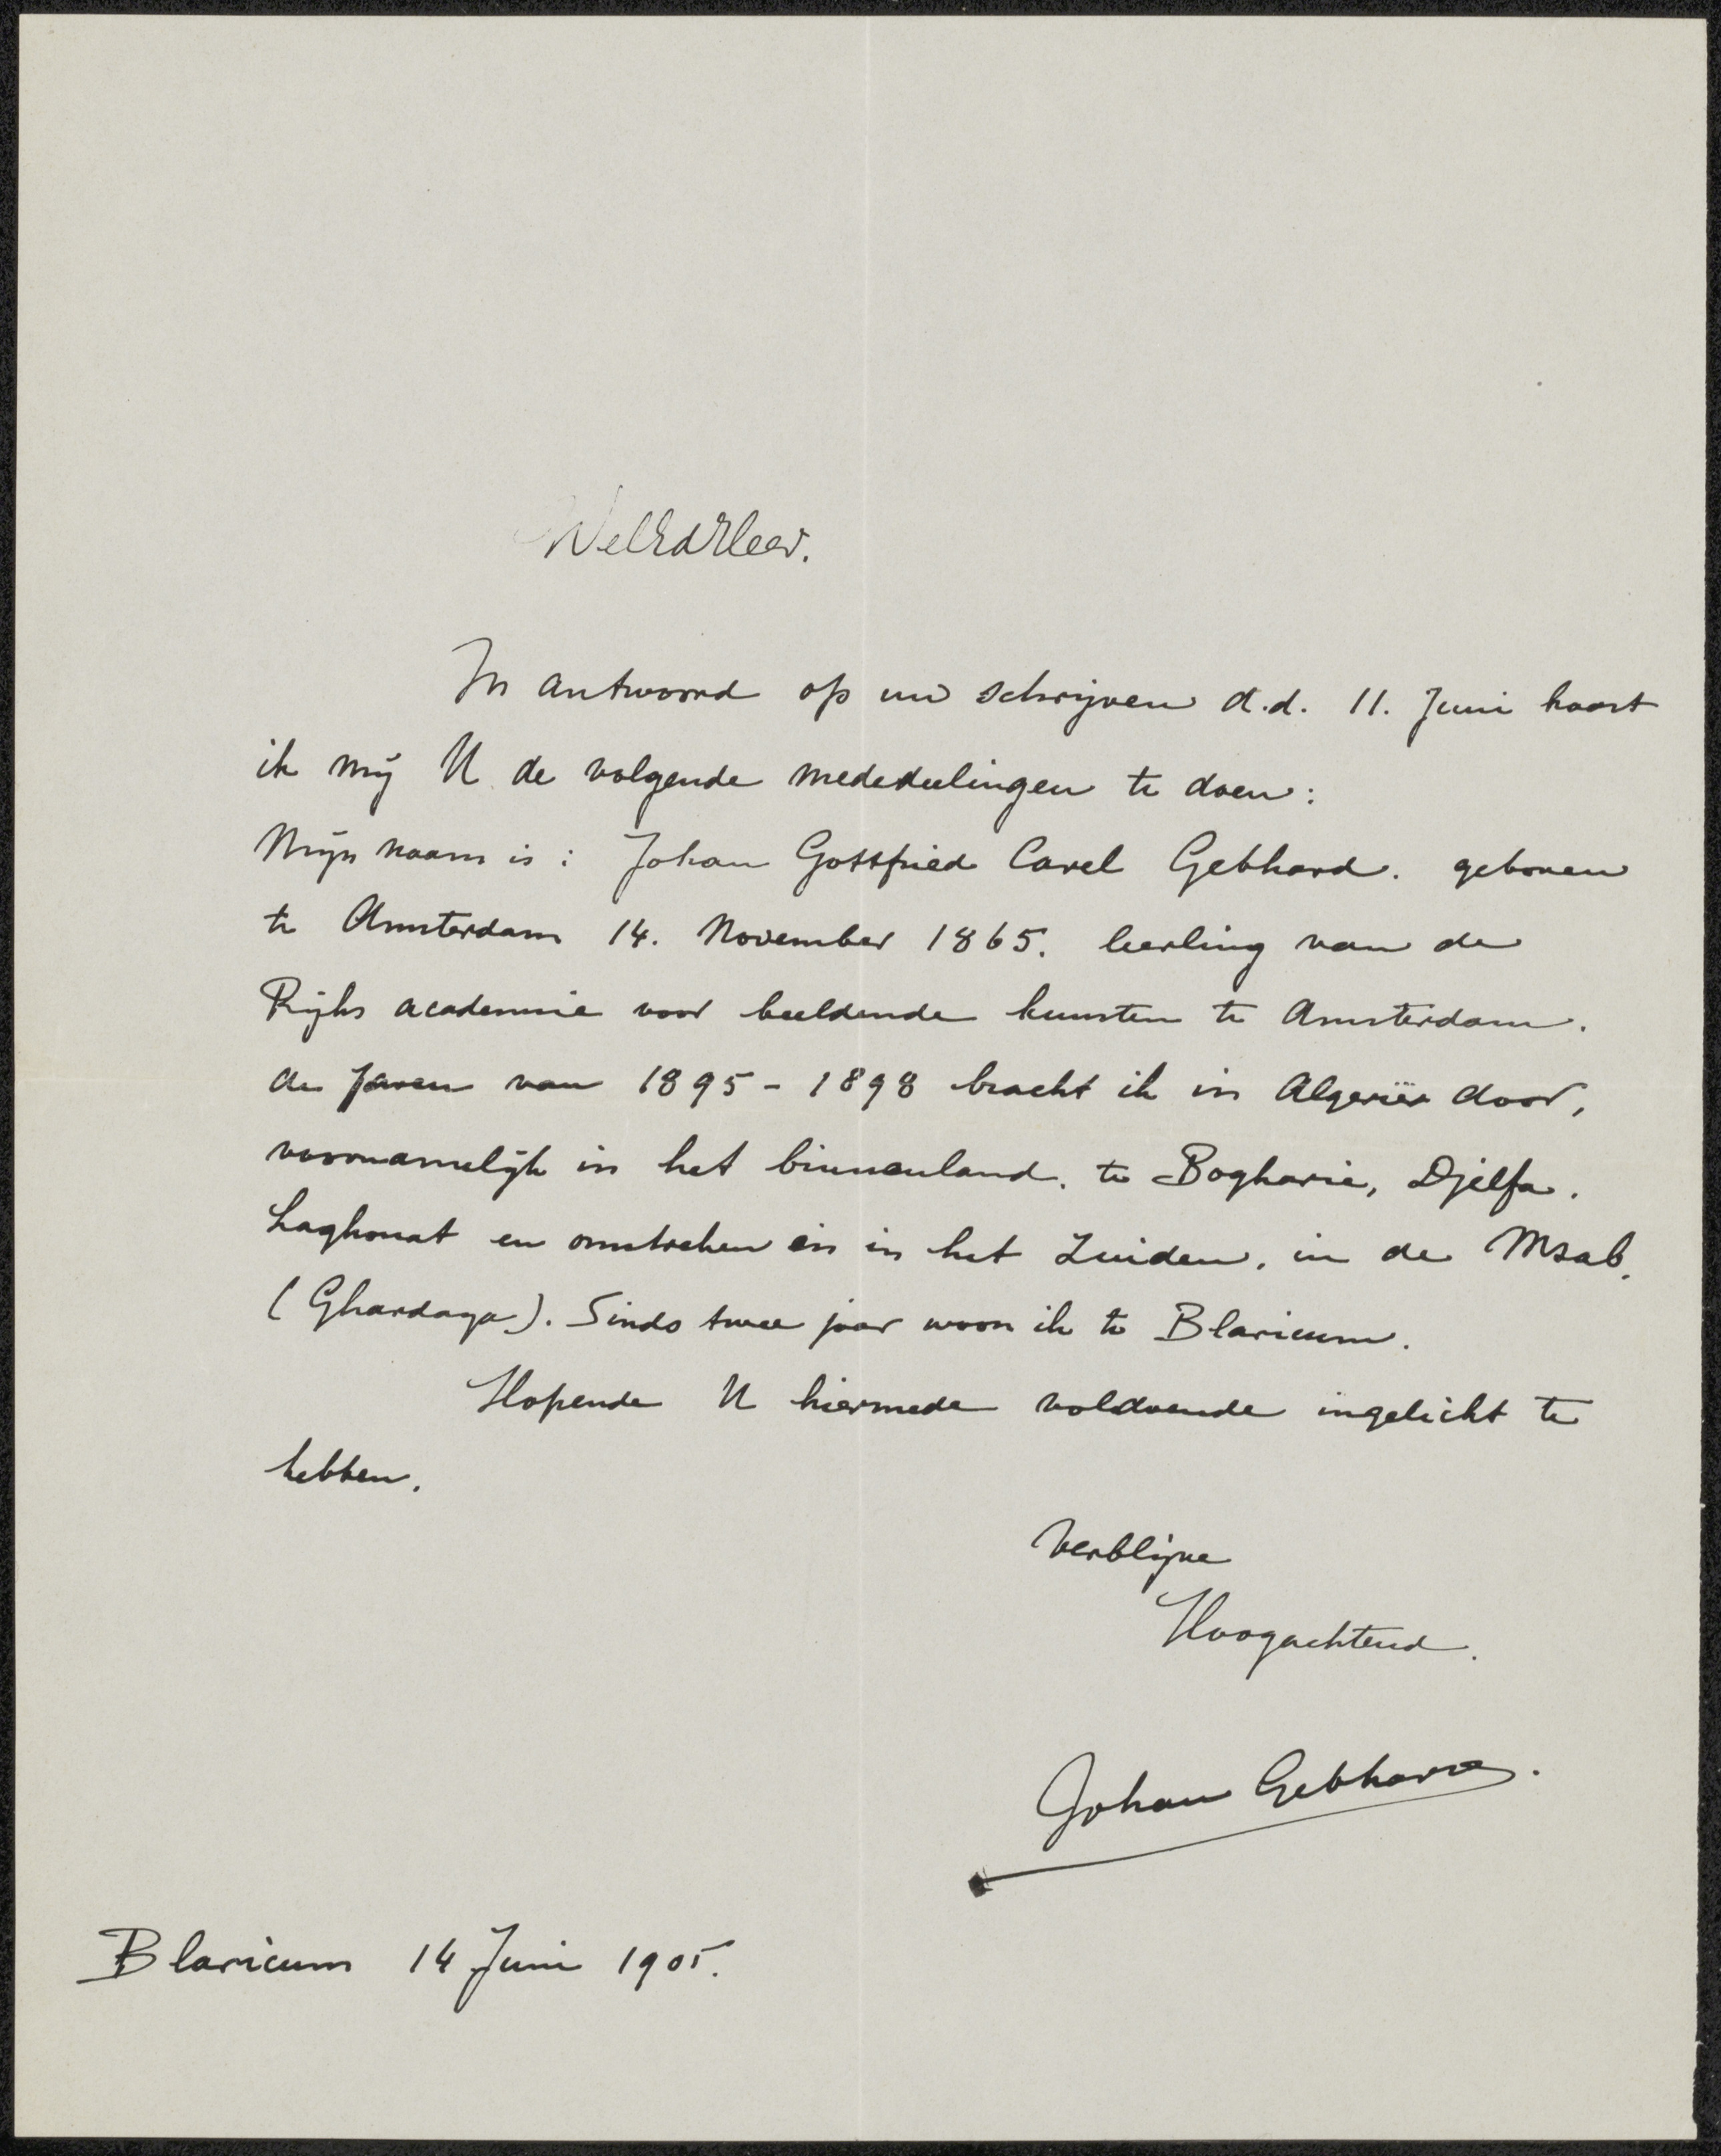 WelEdHeer.
In antwoord op uw schrijven d.d. 11. Juni haast
ik mij U de volgende mededeelingen te doen:
Mijn naam is : Johan Gottfried Carel Gebhard. geboren
te Amsterdam 14. November 1865. leerling van de
Rijks academie voor beeldende kunsten te Amsterdam.
de jaren van 1895 - 1898 bracht ik in Algerië door,
voornamelijk in het binnenland. te Bogharie, Djelfa.
Laghouat en omstreken en in het Zuiden. in de Msab.
(Ghardaya). Sinds twee jaar woon ik te Blaricum.
Hopende U hiermede voldoende ingelicht te
hebben.
Verblijve
Hoogachtend.
Johan Gebhard.
Blaricum 14 Juni 1905.